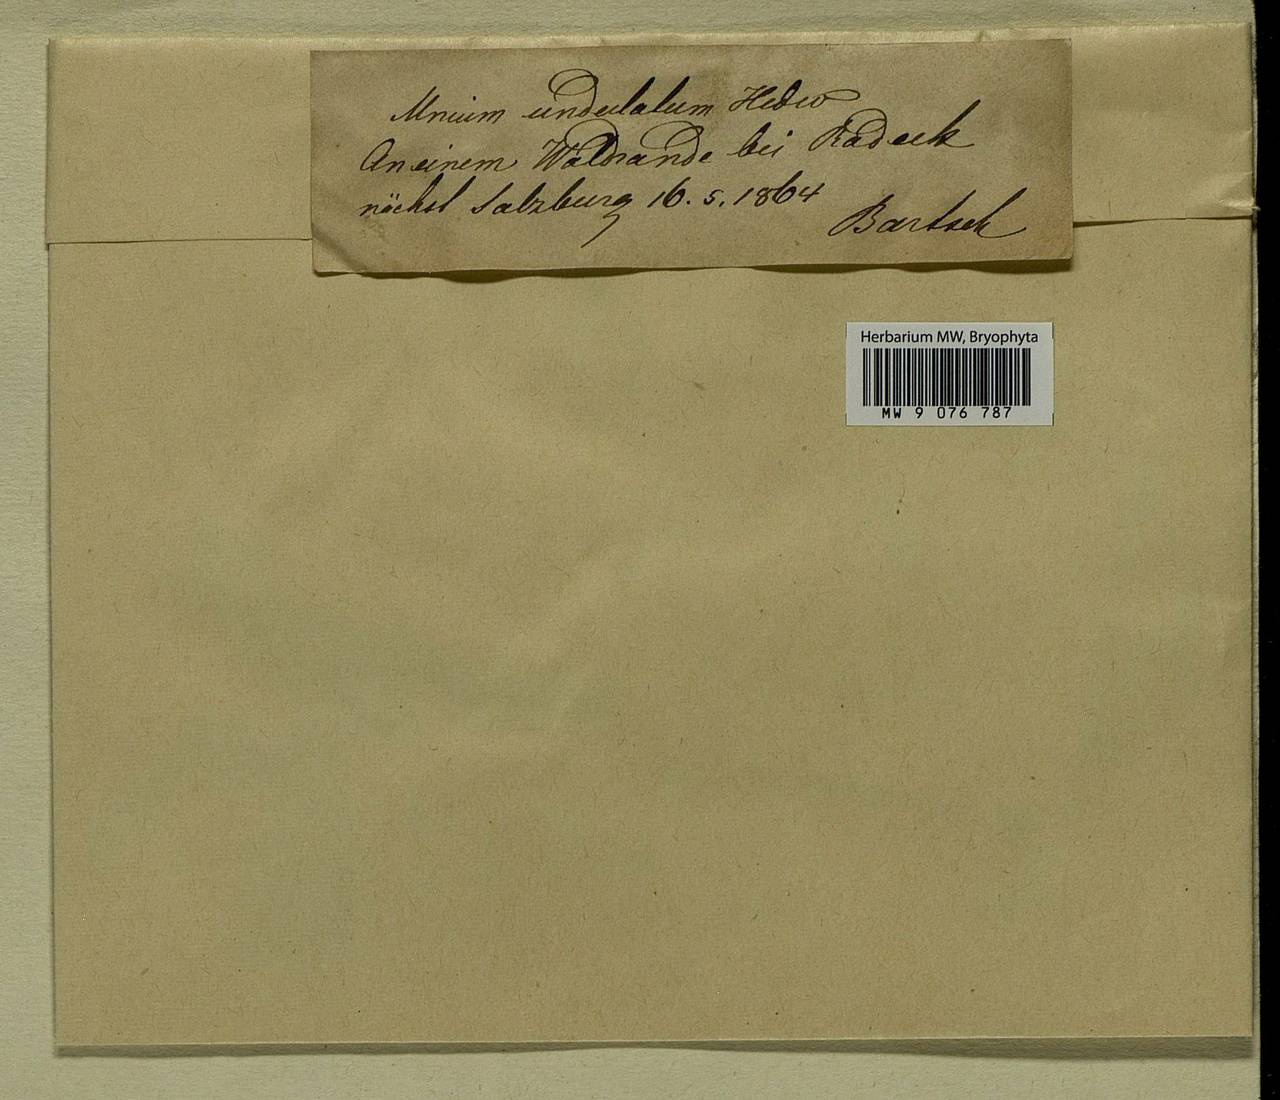 Mnium undulatum Hedw
An einem Waldrande bei Radeck
nächst Salzburg 16. 5. 1864
Bartsch
Herbarium MW, Bryophyta
MW 9 076 787